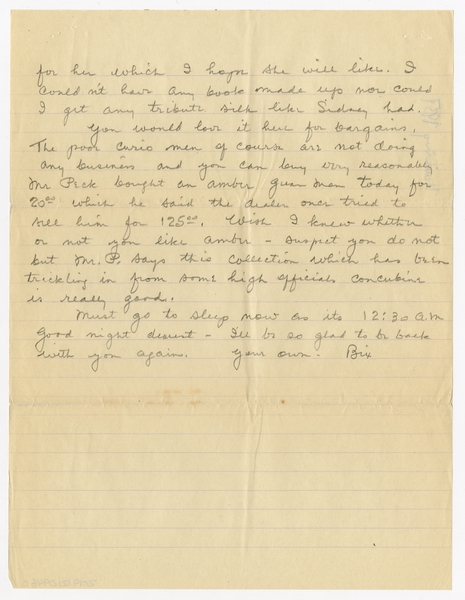 for her which I hope she will like. I
could n't have any book made up nor could
I get any tribute silk like Sidney had.
You would love it here for bargains.
The poor curio men of course are not doing
any business and you can buy very reasonably
Mr Peck bought an amber Guan Men today for
20.00 which he said the dealer once tried to
sell him for 125.00. Wish I knew whether
or not you like amber - suspect you do not
but Mr. P. says this collection which has been
trickling in from some high officials concubine
is really good.
Must go to sleep now as its 12:30 A.M
Good night dearest - I'll be so glad to be back
with you again. Your own. Bix